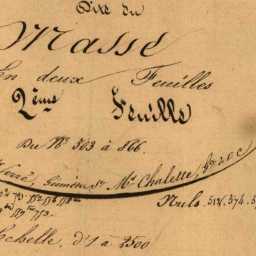 Dite du
Massé
En deux Feuilles
2ème Feuille
Du No 503 à 866.
Mr Chalette
Nuls. 514. 574.
Echelle, d'1 à 2500